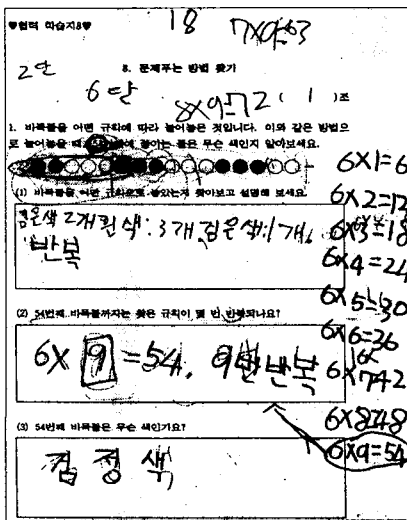 ♥협력 학습지8♥
18
7×9=63
2단
8. 문제푸는 방법 찾기
6단
8×9=72 ( 1 )조
1. 바둑돌을 어떤 규칙에 따라 늘어놓은 것입니다. 이와 같은 방법으
로 늘어놓을 때 놓이는 돌은 무슨 색인지 알아보세요.
(1) 바둑돌을 어떤 규칙으로 놓았는지 찾아보고 설명해 보세요.
검은색 2개 흰색:3개, 검은색:1개,
반복
(2) 54번째 바둑돌까지는 찾은 규칙이 몇 번 반복되나요?
6×9=54. 9번 반복
(3) 54번째 바둑돌은 무슨 색인가요?
검정색
6×1=6
6×2=12
6×3=18
6×4=24
6×5=30
6×6=36
6×7=42
6×8=48
6×9=54